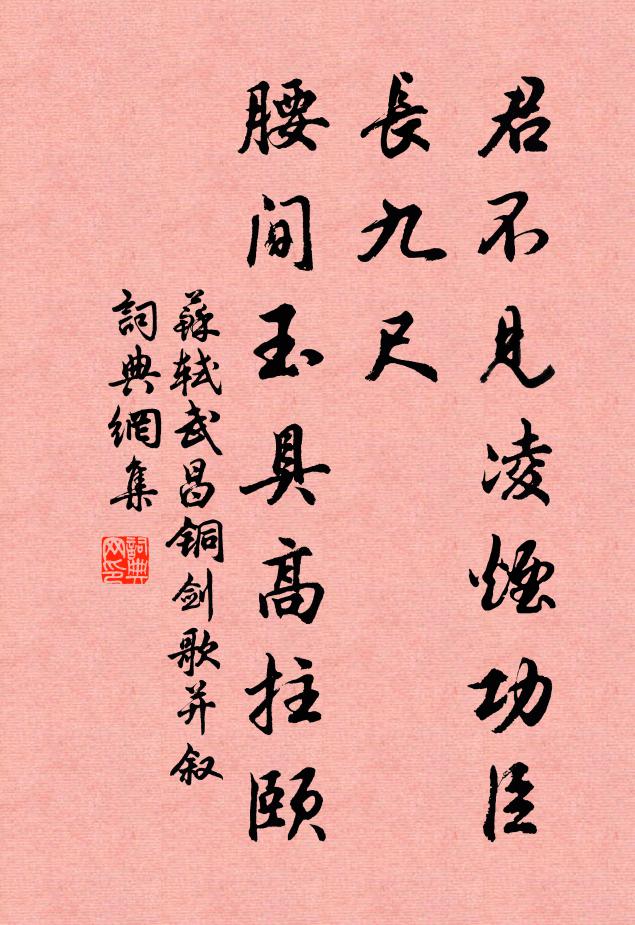 君不見凌煙功臣
長九尺
腰間玉具高拄頤
蘇軾武昌銅劍歌并叙
詞典網集
詞典網印